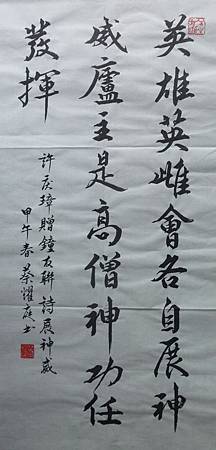 英雄英雌會各自展神
威廬主是高僧神功任
發揮
許庆璋贈鐘友聯詩展神威
甲午春蔡耀庭书